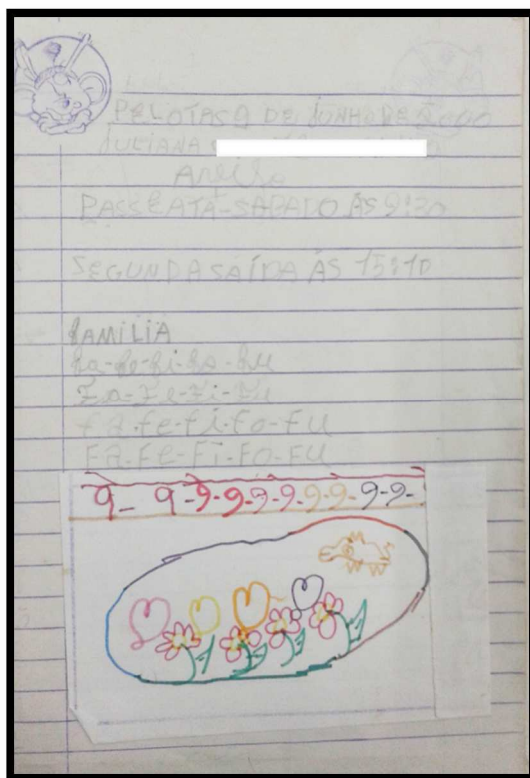 PELOTAS 9 DE JUNHO DE 2000
JULIANA
PASSEATA-SABADO ÀS 9:30
SEGUNDA SAÍDA ÀS 15:10
FAMILIA
fa-fe-fi-fo-fu
Fa-Fe-Fi-Fu
fa-fe-fi-fo-fu
Fa-Fe-Fi-Fo-Fu
9-9-9-9-9-9-9-9-9-9-